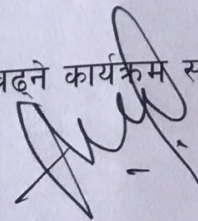 बढ्ने कार्यक्रम स